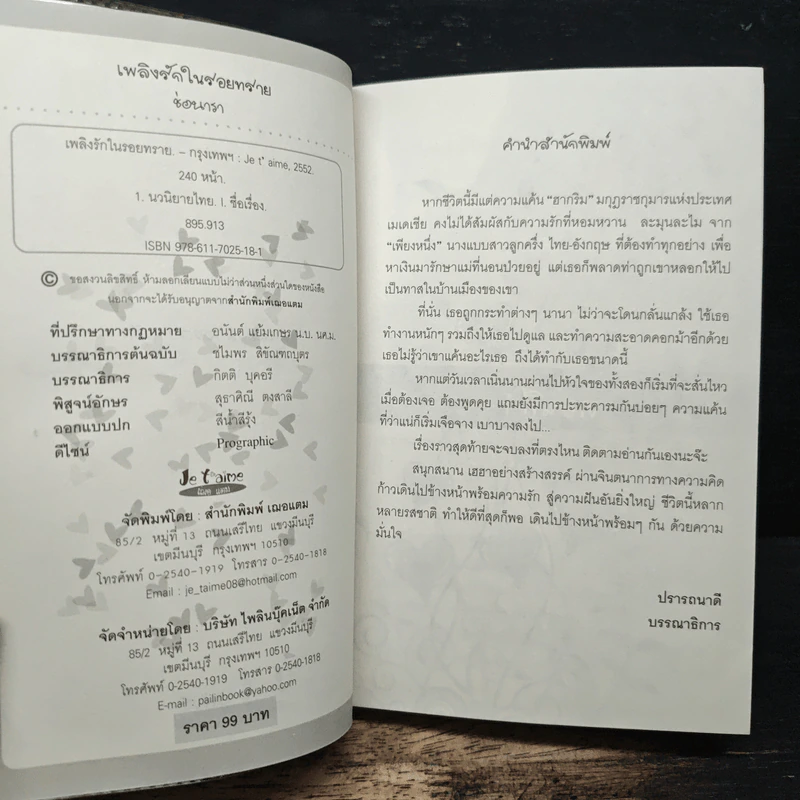 เพลิงรักในรอยทราย
ช่อนารา
เพลิงรักในรอยทราย. – กรุงเทพฯ : Je t' aime, 2552.
240 หน้า.
1. นวนิยายไทย. I. ชื่อเรื่อง.
895.913
ISBN 978-611-7025-18-1
© ขอสงวนลิขสิทธิ์ ห้ามลอกเลียนแบบไม่ว่าส่วนหนึ่งส่วนใดของหนังสือ
นอกจากจะได้รับอนุญาตจากสำนักพิมพ์เฌอแตม
ที่ปรึกษาทางกฎหมาย อนันต์ แย้มเกษร น.บ. นศ.ม.
บรรณาธิการต้นฉบับ ชไมพร สิขัณฑบุตร
บรรณาธิการ กิตติ บุคอรี
พิสูจน์อักษร สุธาศิณี ดงสาลี
ออกแบบปก สีน้ำสีรุ้ง
ดีไซน์ Prographic
Je t'aime
เฌอ แตม
จัดพิมพ์โดย : สำนักพิมพ์ เฌอแตม
85/2 หมู่ที่ 13 ถนนเสรีไทย แขวงมีนบุรี
เขตมีนบุรี กรุงเทพฯ 10510
โทรศัพท์ 0-2540-1919 โทรสาร 0-2540-1818
Email : je_taime08@hotmail.com
จัดจำหน่ายโดย : บริษัท ไพลินบุ๊คเน็ต จำกัด
85/2 หมู่ที่ 13 ถนนเสรีไทย แขวงมีนบุรี
เขตมีนบุรี กรุงเทพฯ 10510
โทรศัพท์ 0-2540-1919 โทรสาร 0-2540-1818
E-mail : pailinbook@yahoo.com
ราคา 99 บาท
คำนำสำนักพิมพ์
หากชีวิตนี้มีแต่ความแค้น "ฮากริม" มกุฎราชกุมารแห่งประเทศ
เมเดเซีย คงไม่ได้สัมผัสกับความรักที่หอมหวาน ละมุนละไม จาก
"เพียงหนึ่ง" นางแบบสาวลูกครึ่ง ไทย-อังกฤษ ที่ต้องทำทุกอย่าง เพื่อ
หาเงินมารักษาแม่ที่นอนป่วยอยู่ แต่เธอก็พลาดท่าถูกเขาหลอกให้ไป
เป็นทาสในบ้านเมืองของเขา
ที่นั่น เธอถูกกระทำต่างๆ นานา ไม่ว่าจะโดนกลั่นแกล้ง ใช้เธอ
ทำงานหนักๆ รวมถึงให้เธอไปดูแล และทำความสะอาดคอกม้าอีกด้วย
เธอไม่รู้ว่าเขาแค้นอะไรเธอ ถึงได้ทำกับเธอขนาดนี้
หากแต่วันเวลาเนิ่นนานผ่านไปหัวใจของทั้งสองก็เริ่มที่จะสั่นไหว
เมื่อต้องเจอ ต้องพูดคุย แถมยังมีการปะทะคารมกันบ่อยๆ ความแค้น
ที่ว่าแน่ก็เริ่มเจือจาง เบาบางลงไป...
เรื่องราวสุดท้ายจะจบลงที่ตรงไหน ติดตามอ่านกันเองนะจ๊ะ
สนุกสนาน เฮฮาอย่างสร้างสรรค์ ผ่านจินตนาการทางความคิด
ก้าวเดินไปข้างหน้าพร้อมความรัก สู่ความฝันอันยิ่งใหญ่ ชีวิตนี้หลาก
หลายรสชาติ ทำให้ดีที่สุดก็พอ เดินไปข้างหน้าพร้อมๆ กัน ด้วยความ
มั่นใจ
ปรารถนาดี
บรรณาธิการ